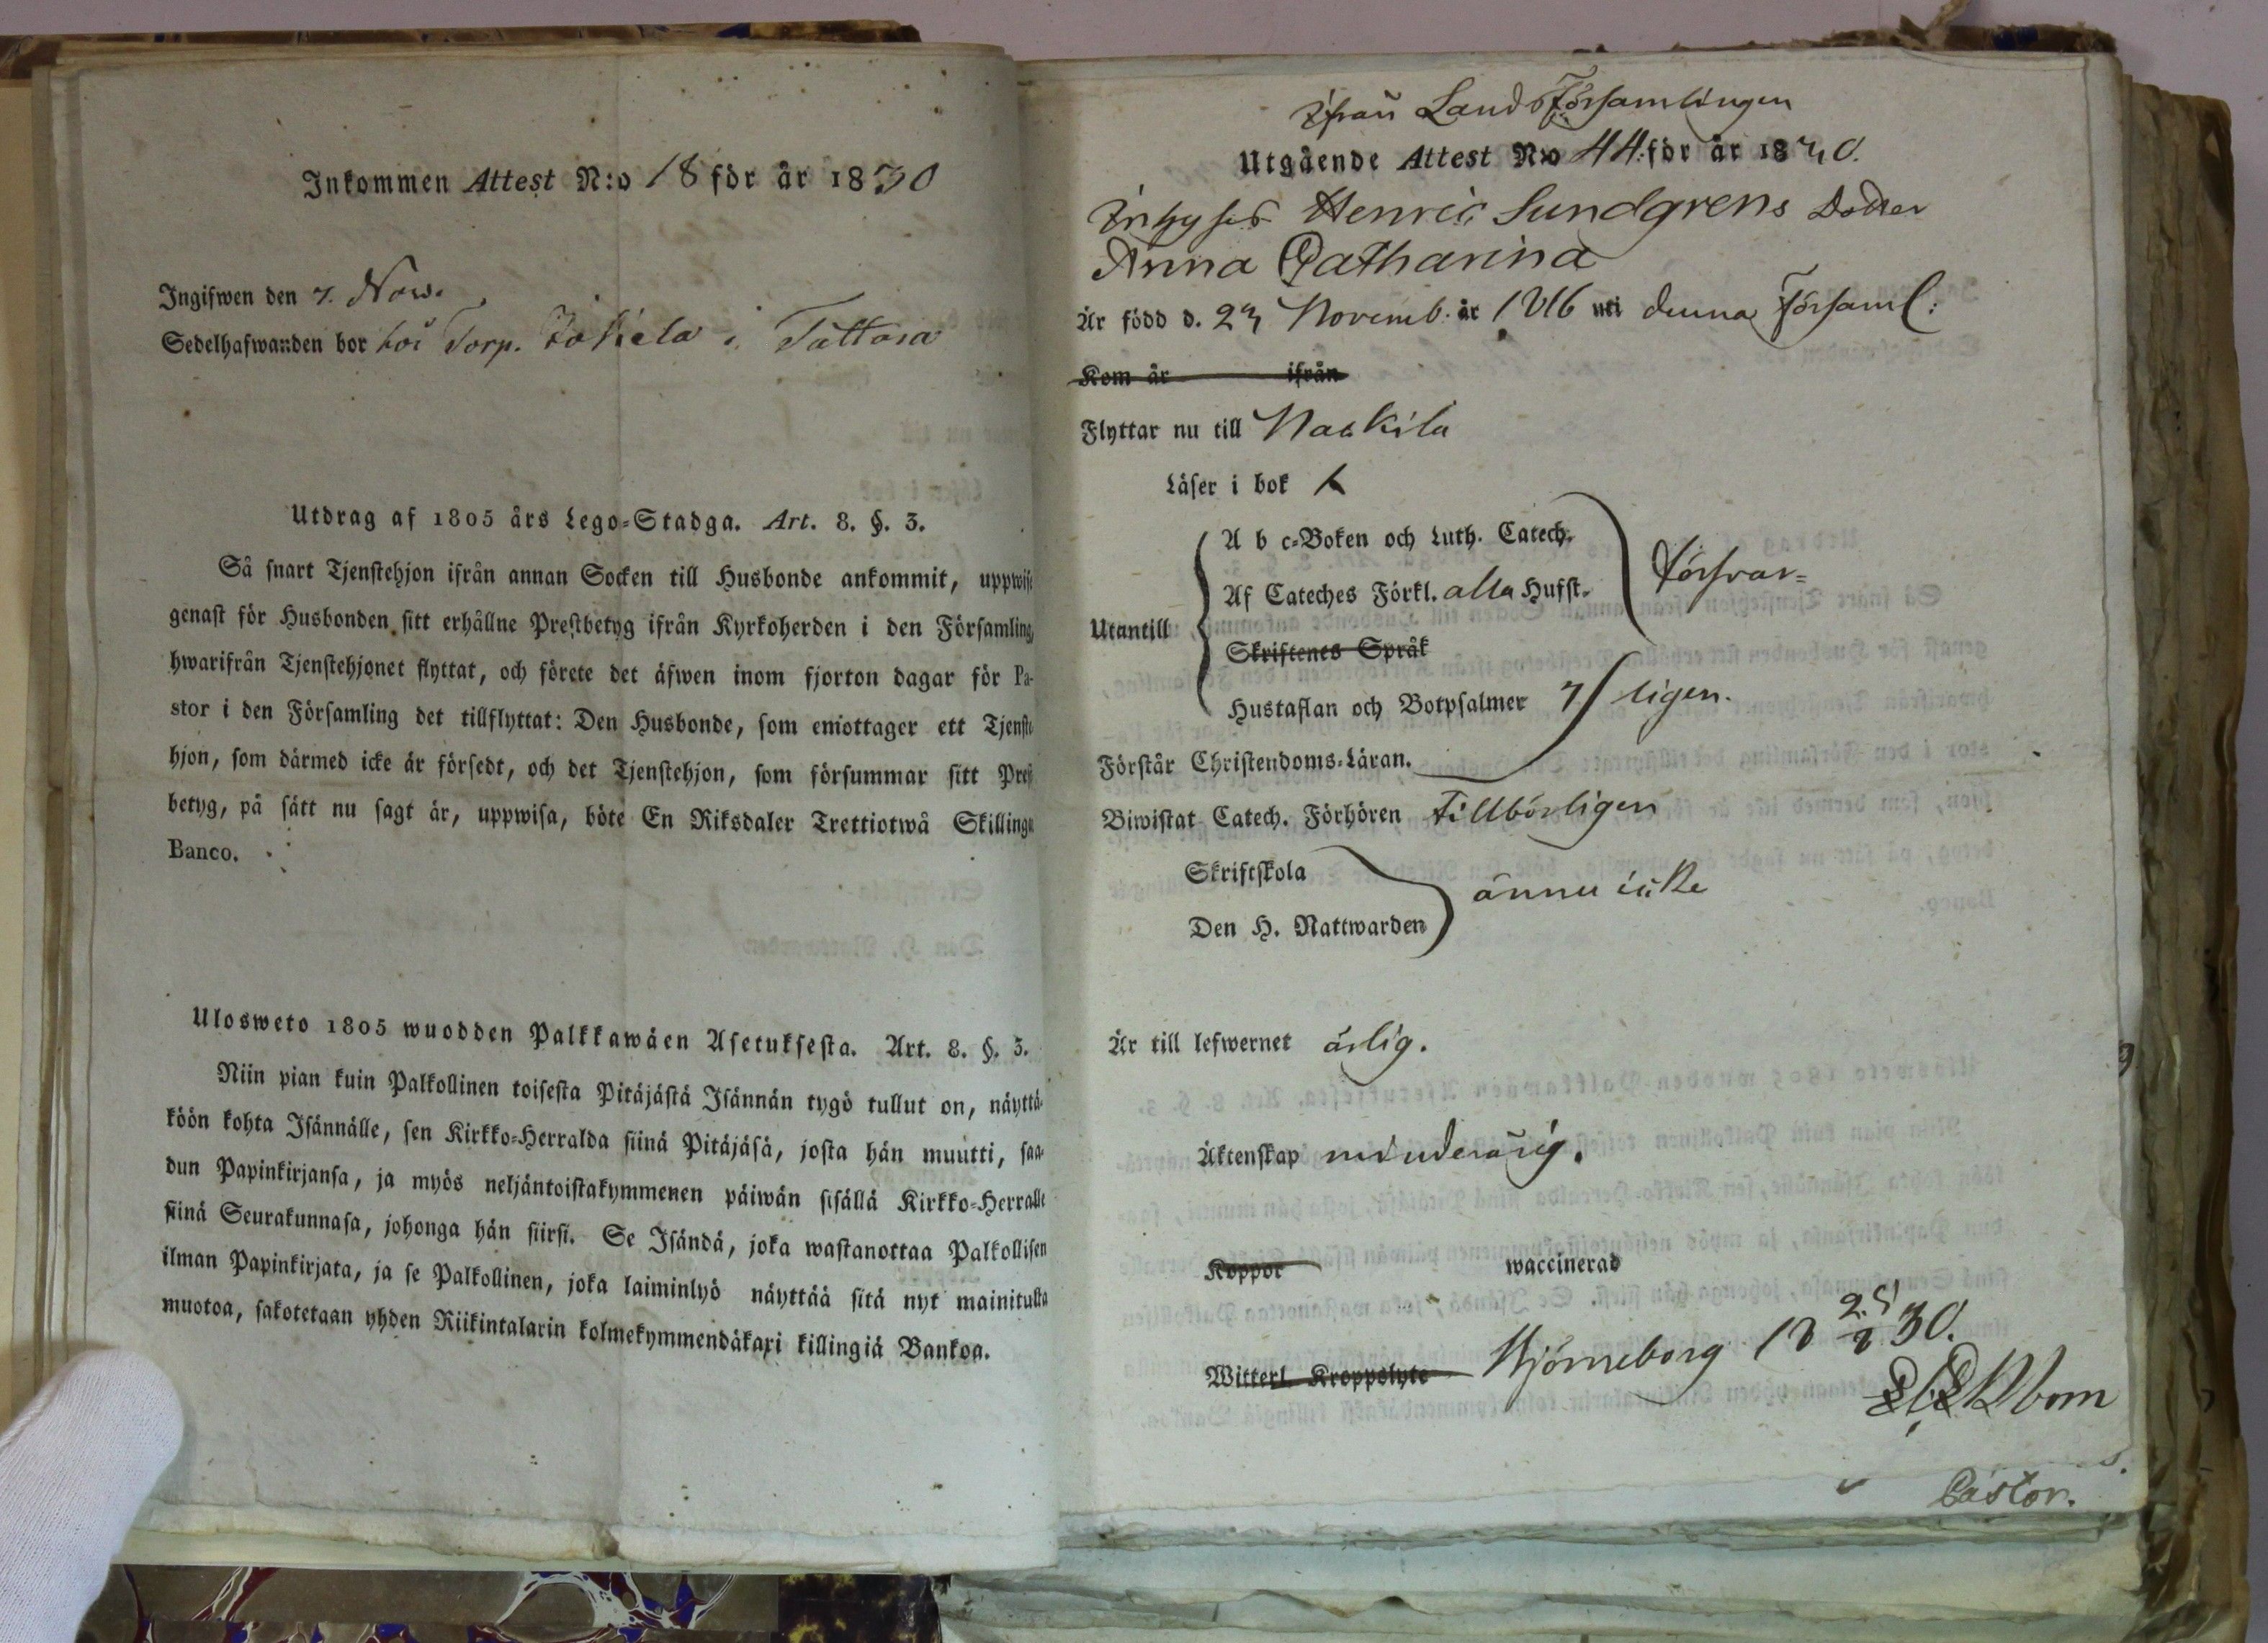 Inkommen Attest N:o 18 för år 1830
Ingifwen den 7. Nov.
Sedelhafwanden bor hos Torp. Jokela i Tattara
Utdrag af 1805 års Lego-Stadga. Art. 8. §. 3.
Så snart Tjenstehjon ifrån annan Socken till Husbonde ankommit, uppwise
genast för Husbonden sitt erhållne Prestbetyg ifrån Kyrkoherden i den Församling,
hwarifrån Tjenstehjonet flyttat, och förete det äfwen inom fjorton dagar för Pa-
stor i den Församling det tillflyttat: Den Husbonde, som emottager ett Tjenste-
hjon, som därmed icke är försedt, och det Tjenstehjon, som försummar sitt Prest-
betyg, på sätt nu sagt är, uppwisa, böte En Riksdaler Trettiotwå Skillingar
Banco.
Ulosweto 1805 wuodden Palkkawäen Asetuksesta. Art. 8. §. 3.
Niin pian kuin Palkollinen toisesta Pitäjästä Isännän tygö tullut on, näyttä-
köön kohta Isännälle, sen Kirkko-Herralda siinä Pitäjäsä, josta hän muutti, saa-
dun Papinkirjansa, ja myös neljäntoistakymmenen päiwän sisällä Kirkko-Herralle
siinä Seurakunnasa, johonga hän siirsi. Se Isändä, joka wastanottaa Palkollisen
ilman Papinkirjata, ja se Palkollinen, joka laiminlyö näyttää sitä nyt mainitulla
muotoa, sakotetaan yhden Riikintalarin kolmekymmendäkaxi killingiä Bankoa.
ifrån Landsförsamlingen
Utgående Attest N:o 44 för år 1830.
Inhyses Henric Sundgrens Dotter
Anna Catharina
Är född d. 23 Novemb. år 1816 uti denna Församl:
Kom år ifrån
Flyttar nu till Nackila
Läser i bok
A b c-Boken och Luth. Catech.
Af Cateches Förkl. alla Hufst.
försvar=
Utantill
Skriftenes Språk
Hustaflan och Botpsalmer 7
ligen.
Förstår Christendoms-Läran.
Biwistat Catech. Förhören tillbörligen
Skriftskola
ännu icke
Den H. Nattwarden
Är till lefwernet ärlig.
Äktenskap minderårig.
Koppor waccinerad
Witterl. Kroppslyte Björneborg 18 25/8 30.
Pastor.